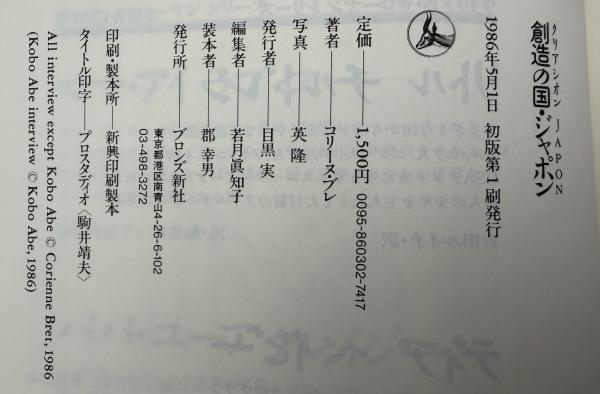 クリアシオン JAPON
創造の国・ジャポン
1986年5月1日 初版第1刷発行
定価——1,500円 0095-860302-7417
著者——コリーヌ・ブレ
写真——英 隆
発行者——目黒 実
編集者——若月眞知子
装本者——郡 幸男
発行所——ブロンズ新社
東京都港区南青山4-26-6-102
03-498-3272
印刷・製本所——新興印刷製本
タイトル印字——プロスタディオ〈駒井靖夫〉
All interview except Kobo Abe © Corienne Bret, 1986
(Kobo Abe interview © Kobo Abe, 1986)